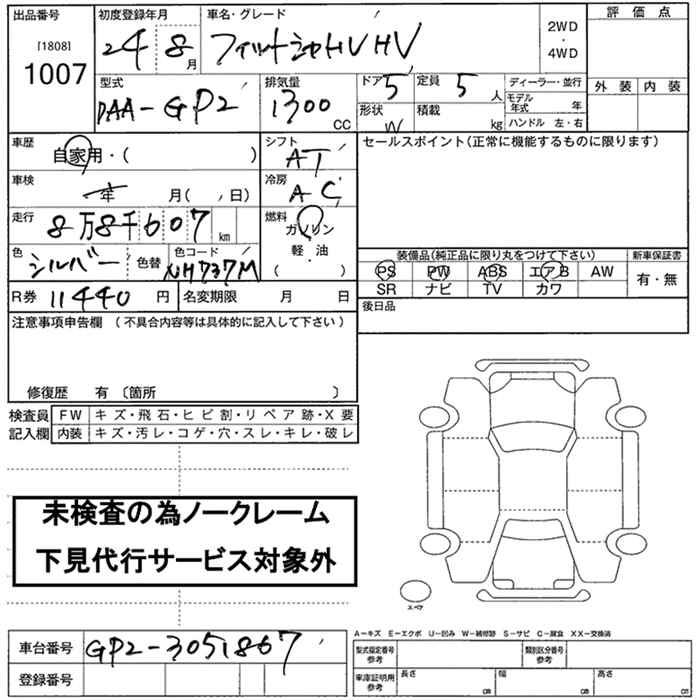 出品番号 初度登録年月 車名・グレード 評価点
[1808] 24 8月 フィットシャトルHV HV 2WD・4WD
1007
型式 排気量 ドア 5 定員 5人 ディーラー・並行 外装 内装
DAA-GP2 1300CC 形状 W 積載 kg モデル年式 年
ハンドル 左・右
車歴 自家用・( ) シフト AT セールスポイント(正常に機能するものに限ります)
車検 年 月( 日) 冷房 AC
走行 8万8千607km 燃料 ガソリン
軽・油
( )
色 シルバー 色替 色コード NH737M
装備品(純正品に限り丸をつけて下さい) 新車保証書
PS PW ABS エアB AW 有・無
SR ナビ TV カワ
R券 11440円 名変期限 月 日 後日品
注意事項申告欄 (不具合内容等は具体的に記入して下さい)
修復歴 有 〔箇所 〕
検査員 FW キズ・飛石・ヒビ割・リペア跡・X要
記入欄 内装 キズ・汚レ・コゲ・穴・スレ・キレ・破レ
未検査の為ノークレーム
下見代行サービス対象外
スペア
A-キズ E-エクボ U-凹み W-補修跡 S-サビ C-腐食 XX-交換済
車台番号 GP2-3051867 型式指定番号 参考 類別区分番号 参考
登録番号 車庫証明用 参考 長さ cm 幅 cm 高さ cm